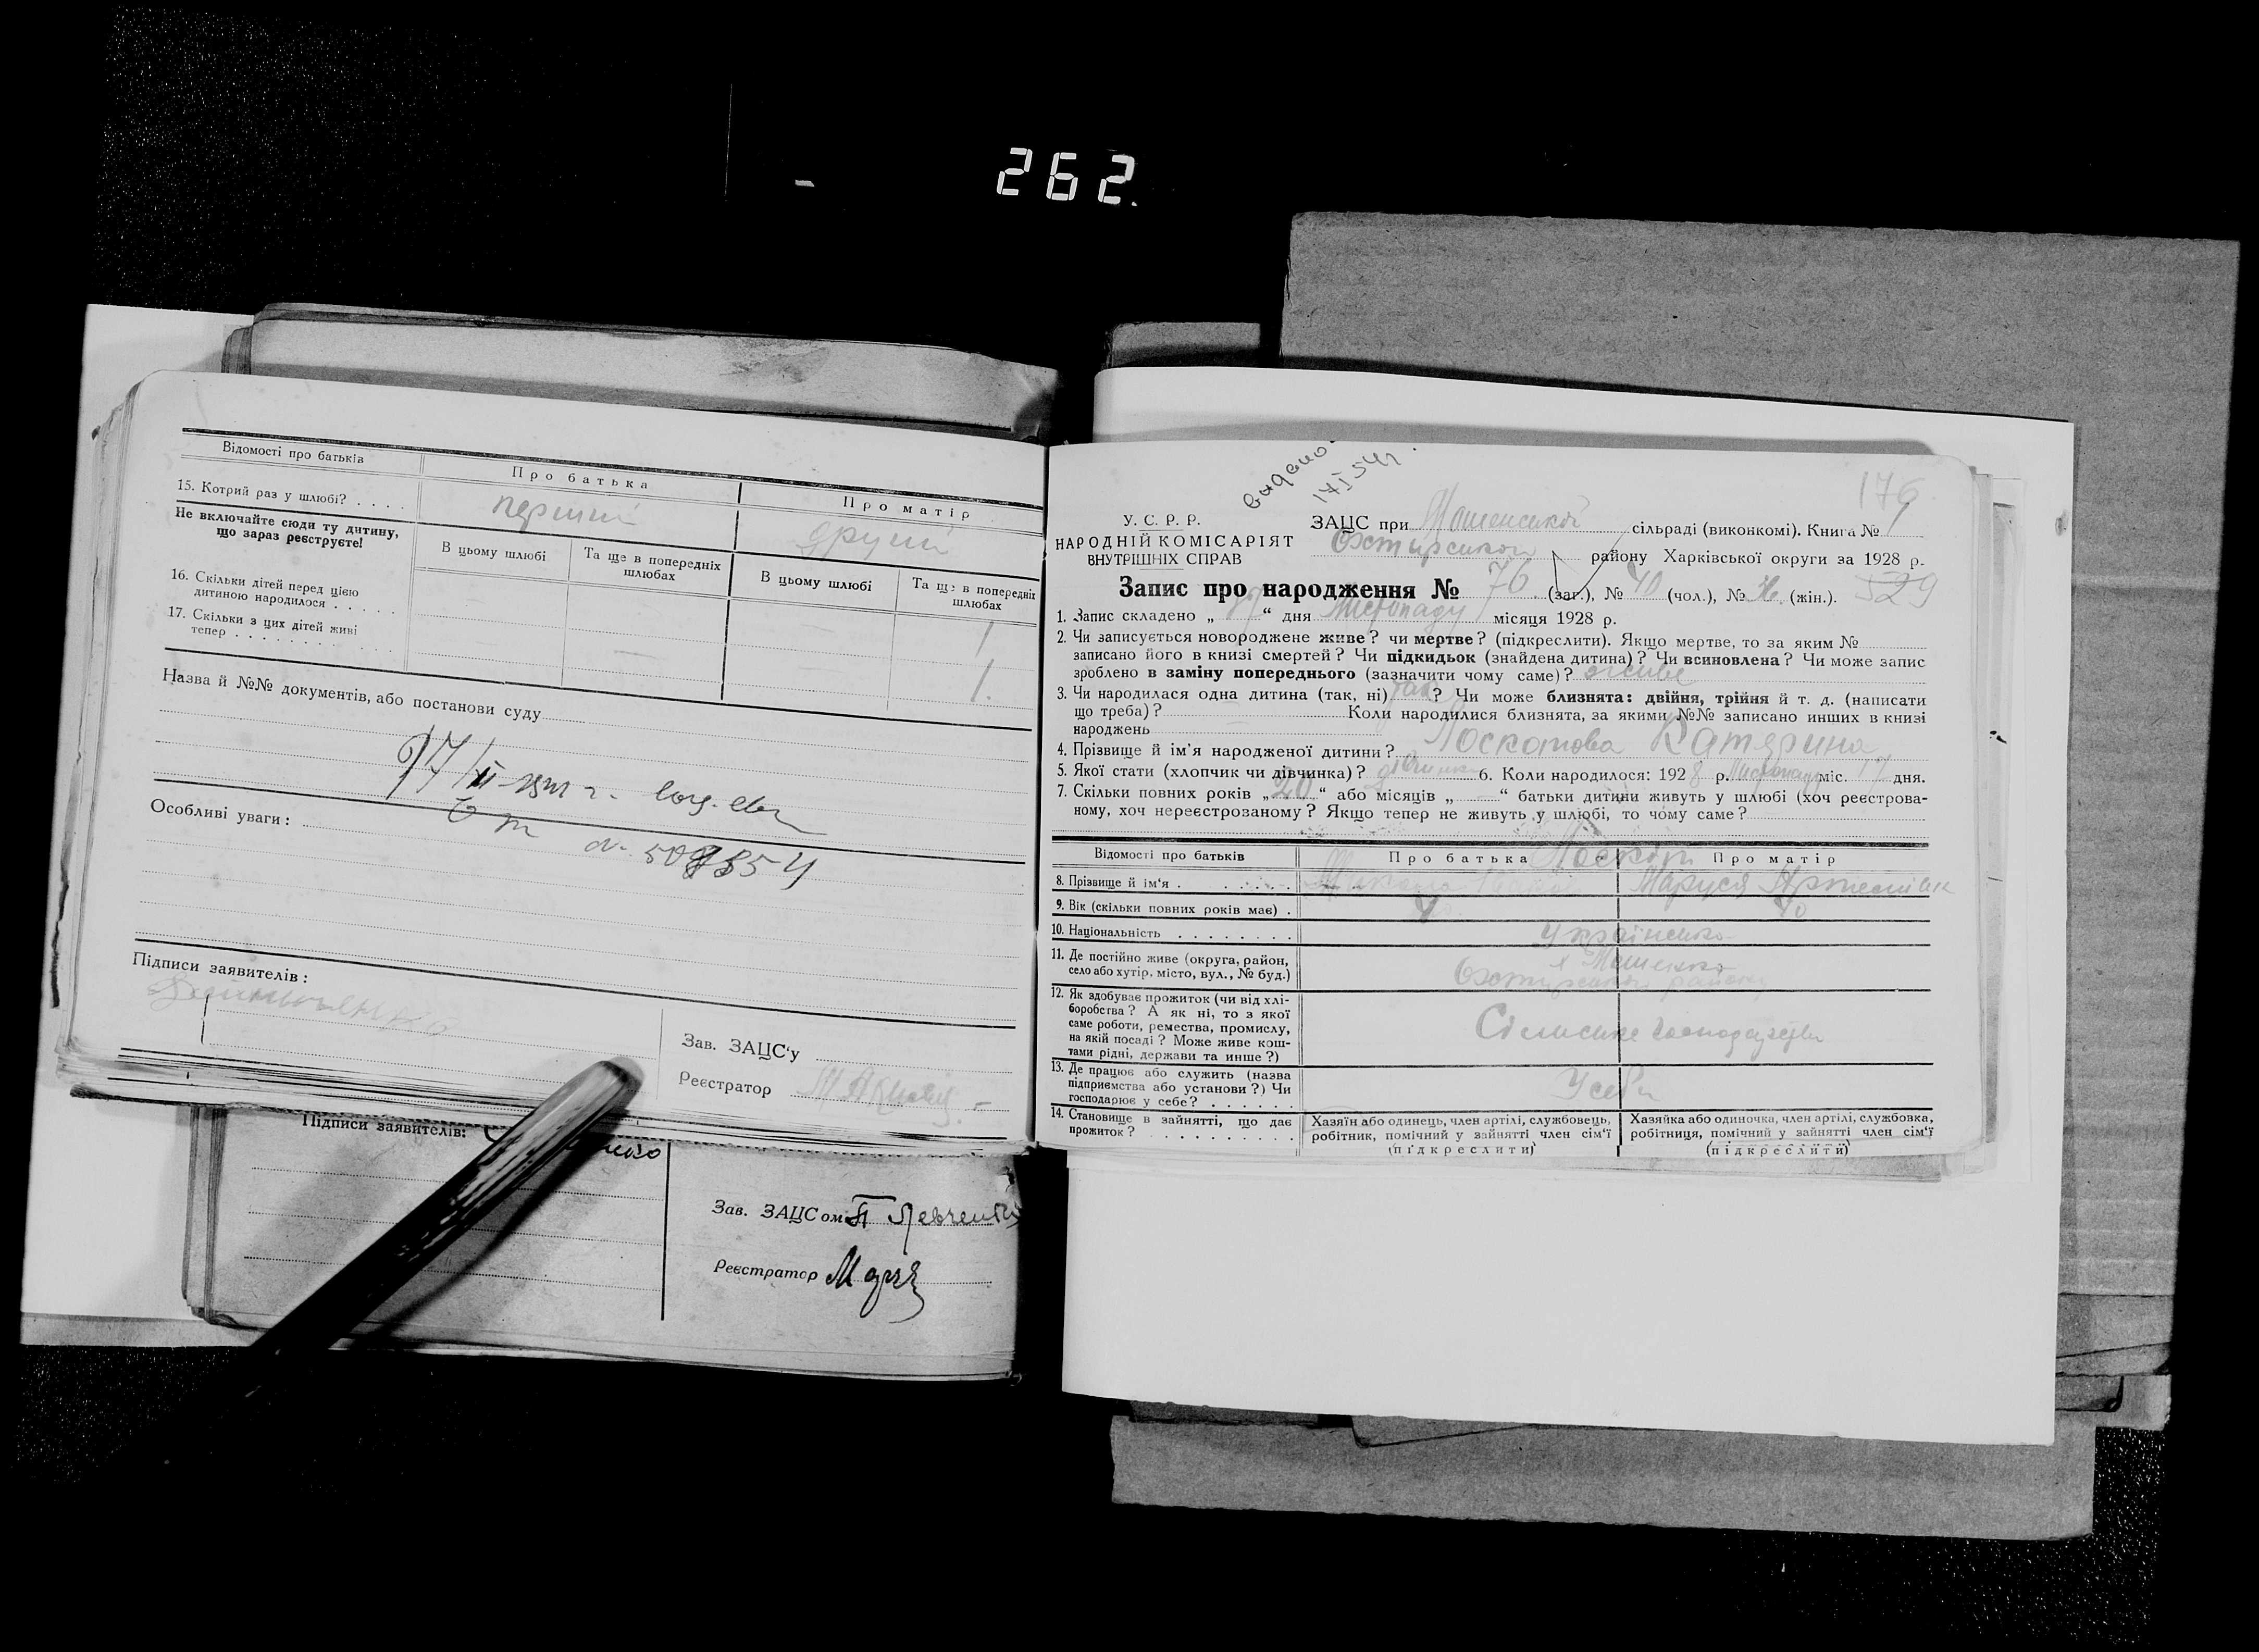 262.
Відомості про батьків
Про батька
Про матір
15. Котрий раз у шлюбі? . . . .
перший
другий
Не включайте сюди ту дитину,
що зараз реєструєте!
В цьому шлюбі
Та ще в попередніх
шлюбах
В цьому шлюбі
Та ще в попередніх
шлюбах
16. Скільки дітей перед цією
дитиною народилося . . . . .
1
17. Скільки з цих дітей живі
тепер . . . . . . . . . .
1.
Назва й №№ документів, або постанови суду
Особливі уваги :
Підписи заявителів :
Зав. ЗАЦС'у
Реєстратор
Підписи заявителів:
Зав. ЗАЦСом П Левченко
Реєстратор
видано
17 I 54 г.
176
У. С. Р. Р.
НАРОДНІЙ КОМІСАРІЯТ
ВНУТРІШНІХ СПРАВ
ЗАЦС при Мошенській сільраді (виконкомі). Книга № 1
Охтирського району Харківської округи за 1928 р.
Запис про народження № 76 (заг.), № 40 (чол.), № 36 (жін.). 529
1. Запис складено „ “ дня Листопаду місяця 1928 р.
2. Чи записується новороджене живе? чи мертве? (підкреслити). Якщо мертве, то за яким №
записано його в книзі смертей? Чи підкидьок (знайдена дитина)? Чи всиновлена? Чи може запис
зроблено в заміну попереднього (зазначити чому саме)? живе
3. Чи народилася одна дитина (так, ні) так? Чи може близнята: двійня, трійня й т. д. (написати
що треба)? Коли народилися близнята, за якими №№ записано инших в книзі
народжень
4. Прізвище й ім'я народженої дитини? Лоскотова Катерина
5. Якої стати (хлопчик чи дівчинка)? дівчинка 6. Коли народилося: 1928 р. Листопаду міс. 17 дня.
7. Скільки повних років „20“ або місяців „—“ батьки дитини живуть у шлюбі (хоч реєстрова-
ному, хоч нереєстрозаному? Якщо тепер не живуть у шлюбі, то чому саме?
Відомості про батьків
Про батька
Про матір
8. Прізвище й ім'я .
Маруся
9. Вік (скільки повних років має) .
40
10. Національність . . . . . . . .
Українська
11. Де постійно живе (округа, район,
село або хутір, місто, вул., № буд.)
Охтирського району
12. Як здобуває прожиток (чи від хлі-
боробства? А як ні, то з якої
саме роботи, ремества, промислу,
на якій посаді? Може живе кош-
тами рідні, держави та инше?)
Сільське господарство
13. Де працює або служить (назва
підприємства або установи?) Чи
господарює у себе? . . . . . .
У себе
14. Становище в зайнятті, що дає
прожиток? . . . . . . . . . .
Хазяїн або одинець, член артілі, службовець,
робітник, помічний у зайнятті член сім'ї
(підкреслити)
Хазяйка або одиночка, член артілі, службовка,
робітниця, помічний у зайнятті член сім'ї
(підкреслити)